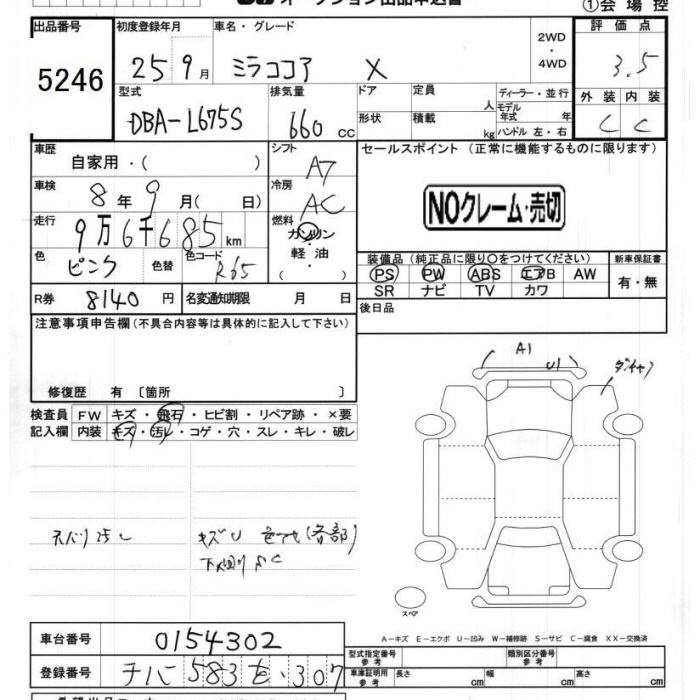 ①会場控
出品番号 初度登録年月 車名・グレード 2WD・4WD 評価点
5246 25年9月 ミラココア X 3.5
型式 排気量 ドア 定員 人 ディーラー・並行 外装 内装
DBA-L675S 660cc 形状 積載 kg モデル年式 年 ハンドル 左・右 C C
車歴 自家用・( ) シフト A7 セールスポイント (正常に機能するものに限ります)
車検 8年9月( 日) 冷房 AC
NOクレーム・売切
走行 9万6千685km 燃料 ガソリン・軽油・( )
色 ピンク 色替 色コード R65
装備品 (純正品に限り○をつけてください) 新車保証書
PS PW ABS エアB AW 有・無
SR ナビ TV カワ
R券 8140円 名変通知期限 月 日 後日品
注意事項申告欄 (不具合内容等は具体的に記入して下さい)
A1 U1
修復歴 有 〔箇所 〕
検査員 FW キズ・飛石・ヒビ割・リペア跡・×要
記入欄 内装 キズ・汚れ・コゲ・穴・スレ・キレ・破レ
キズU (各部)
下回りSC
スペア
A-キズ E-エクボ U-凹み W-補修跡 S-サビ C-腐食 XX-交換済
車台番号 0154302 型式指定番号 参考 類別区分番号 参考
登録番号 チバ 583 を・307 車庫証明用 参考 長さ cm 幅 cm 高さ cm